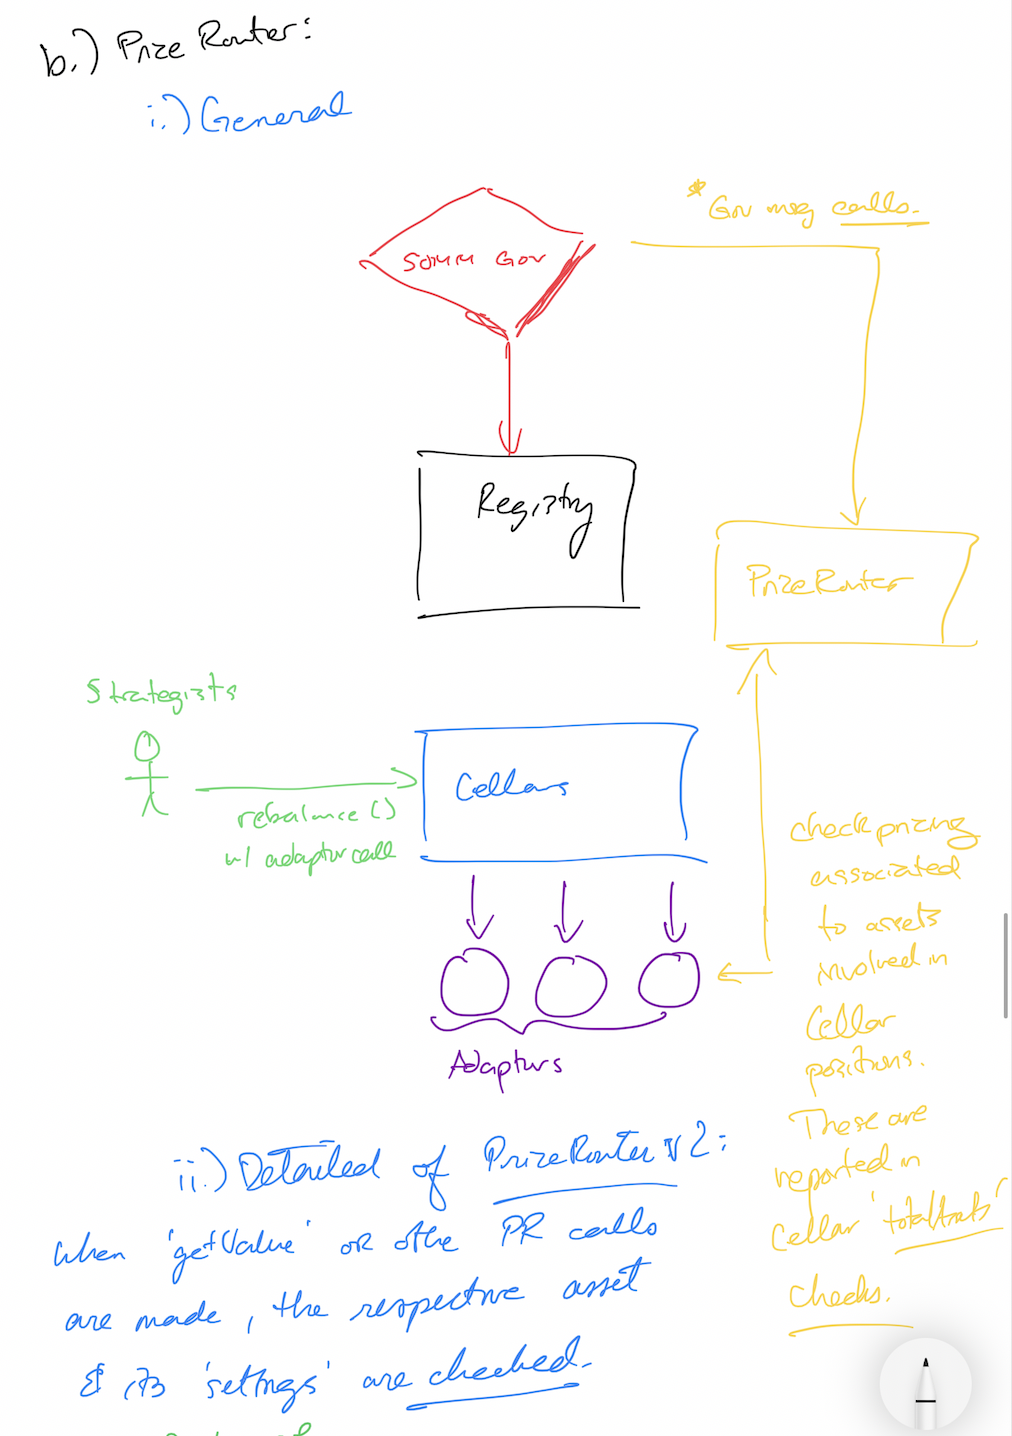 b.) Prize Router:
i.) General
*Gov msg calls.
SOMM Gov
Registry
PrizeRouter
Strategists
rebalance()
w/ adaptor call
Cellars
Adaptors
check prizing
associated
to assets
involved in
Cellar
positions.
These are
reported in
Cellar 'totalAssets'
checks.
ii.) Detailed of PrizeRouter v2:
When 'getValue' or other PR calls
are made, the respective asset
& its 'settings' are checked.